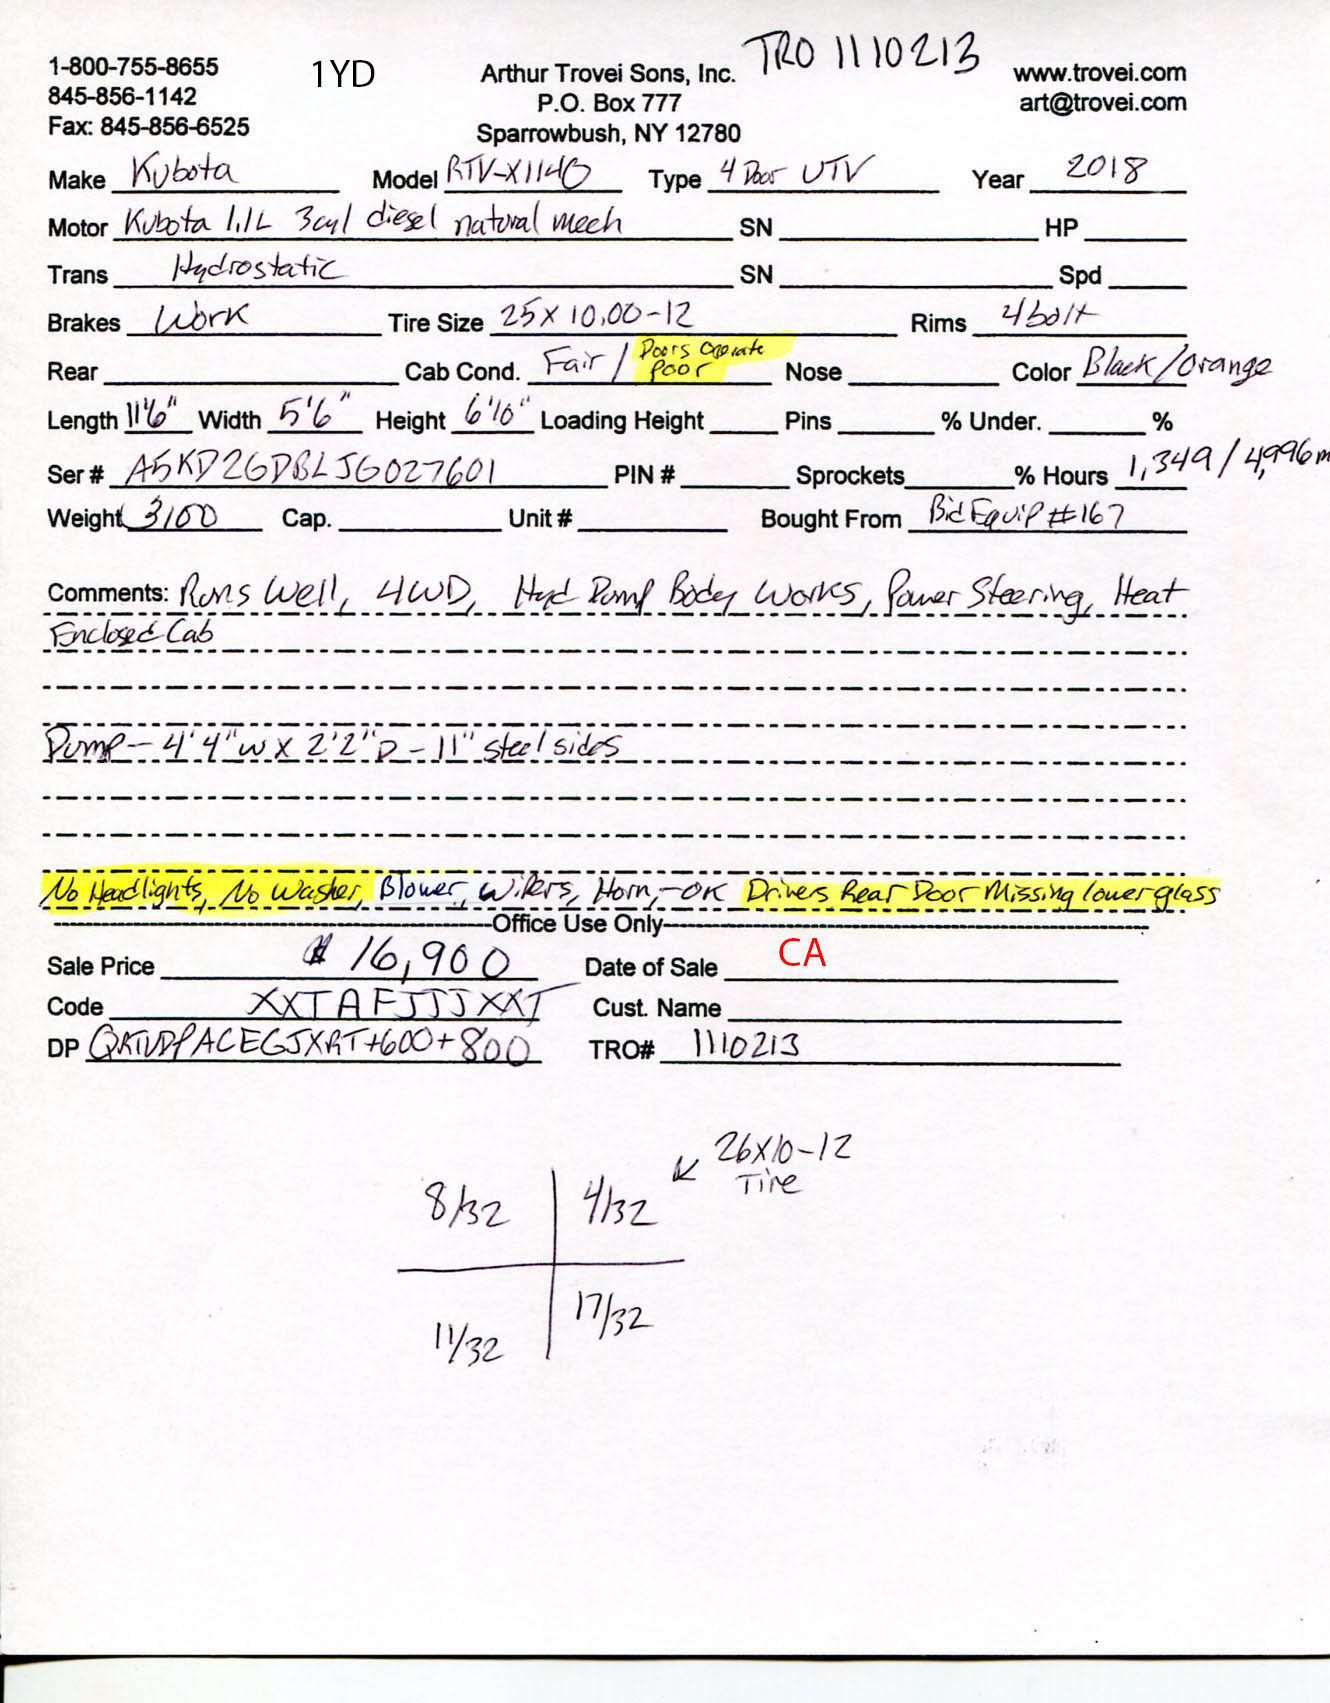 TRO 1110213
1-800-755-8655 1YD Arthur Trovei Sons, Inc. www.trovei.com
845-856-1142 P.O. Box 777 art@trovei.com
Fax: 845-856-6525 Sparrowbush, NY 12780
Make Kubota Model RTV-X1140 Type 4 Door UTV Year 2018
Motor Kubota 1.1L 3cyl diesel natural mech SN HP
Trans Hydrostatic SN Spd
Brakes Work Tire Size 25x10.00-12 Rims 4bolt
Rear Cab Cond. Fair / Doors Operate Poor Nose Color Black/Orange
Length 11'6" Width 5'6" Height 6'10" Loading Height Pins % Under. %
Ser # A5KD2GDBLJG027601 PIN # Sprockets % Hours 1,349 / 4,996m
Weight 3100 Cap. Unit # Bought From Bid Equip #167
Comments: Runs Well, 4WD, Hyd Dump Body Works, Power Steering, Heat
Enclosed Cab
Dump - 4'4"W x 2'2"D - 11" steel sides
No Headlights, No Washer, Blower, Wipers, Horn, -OK Drivers Rear Door Missing lower glass
Office Use Only
Sale Price $ 16,900 Date of Sale CA
Code XXTAFJJJXXT Cust. Name
DP +600+800 TRO# 1110213
26x10-12
Tire
8/32 4/32
11/32 17/32